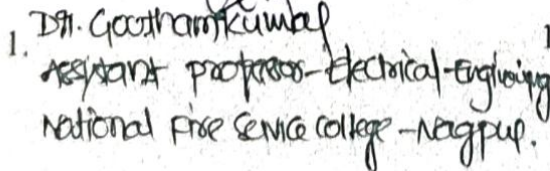 1. Dr. Gowthamkumar
Assistant professor - Electrical - Engineering
National Fire Service College - Nagpur.